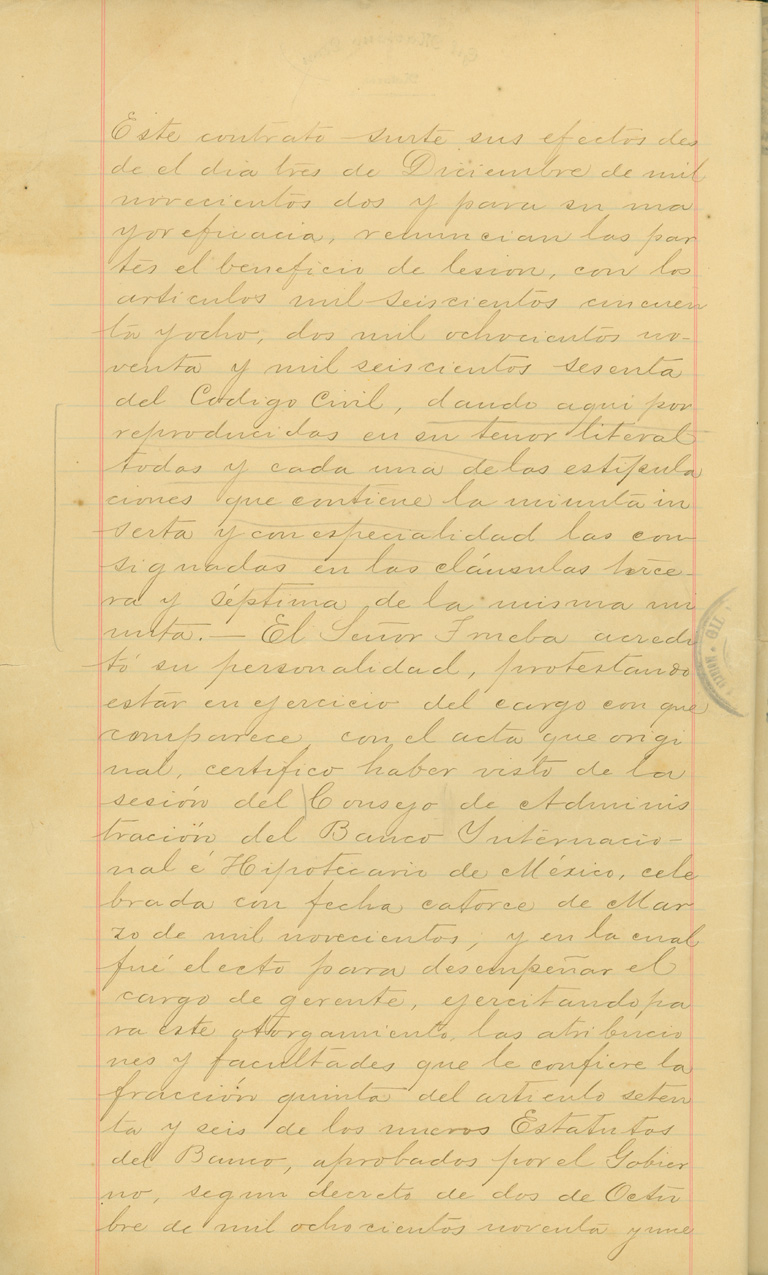 Este contrato surte sus efectos des
de el dia tres de Diciembre de mil
novecientos dos y para su ma
yor eficacia, renuncian las par
tes el beneficio de lesion, con los
articulos mil seiscientos cincuen
ta y ocho, dos mil ochocientos no-
venta y mil seiscientos sesenta
del Codigo Civil, dando aqui por
reproducidas en su tenor literal
todas y cada una de las estipula
ciones que contiene la minuta in
serta y con especialidad las con
signadas en las cláusulas terce-
ra y séptima de la misma mi
nuta.— El Señor Trueba acredi
tó su personalidad, protestando
estar en ejercicio del cargo con que
comparece, con el acta que origi
nal, certifico haber visto de la
sesión del Consejo de Adminis
tración del Banco Internacio-
nal é Hipotecario de México, cele
brada con fecha catorce de Mar
zo de mil novecientos, y en la cual
fué electo para desempeñar el
cargo de gerente, ejercitando pa
ra este otorgamiento, las atribucio
nes y facultades que le confiere la
fracción quinta del articulo seten
ta y seis de los nuevos Estatutos
del Banco, aprobados por el Gobier
no, segun decreto de dos de Octu
bre de mil ochocientos noventa y nue